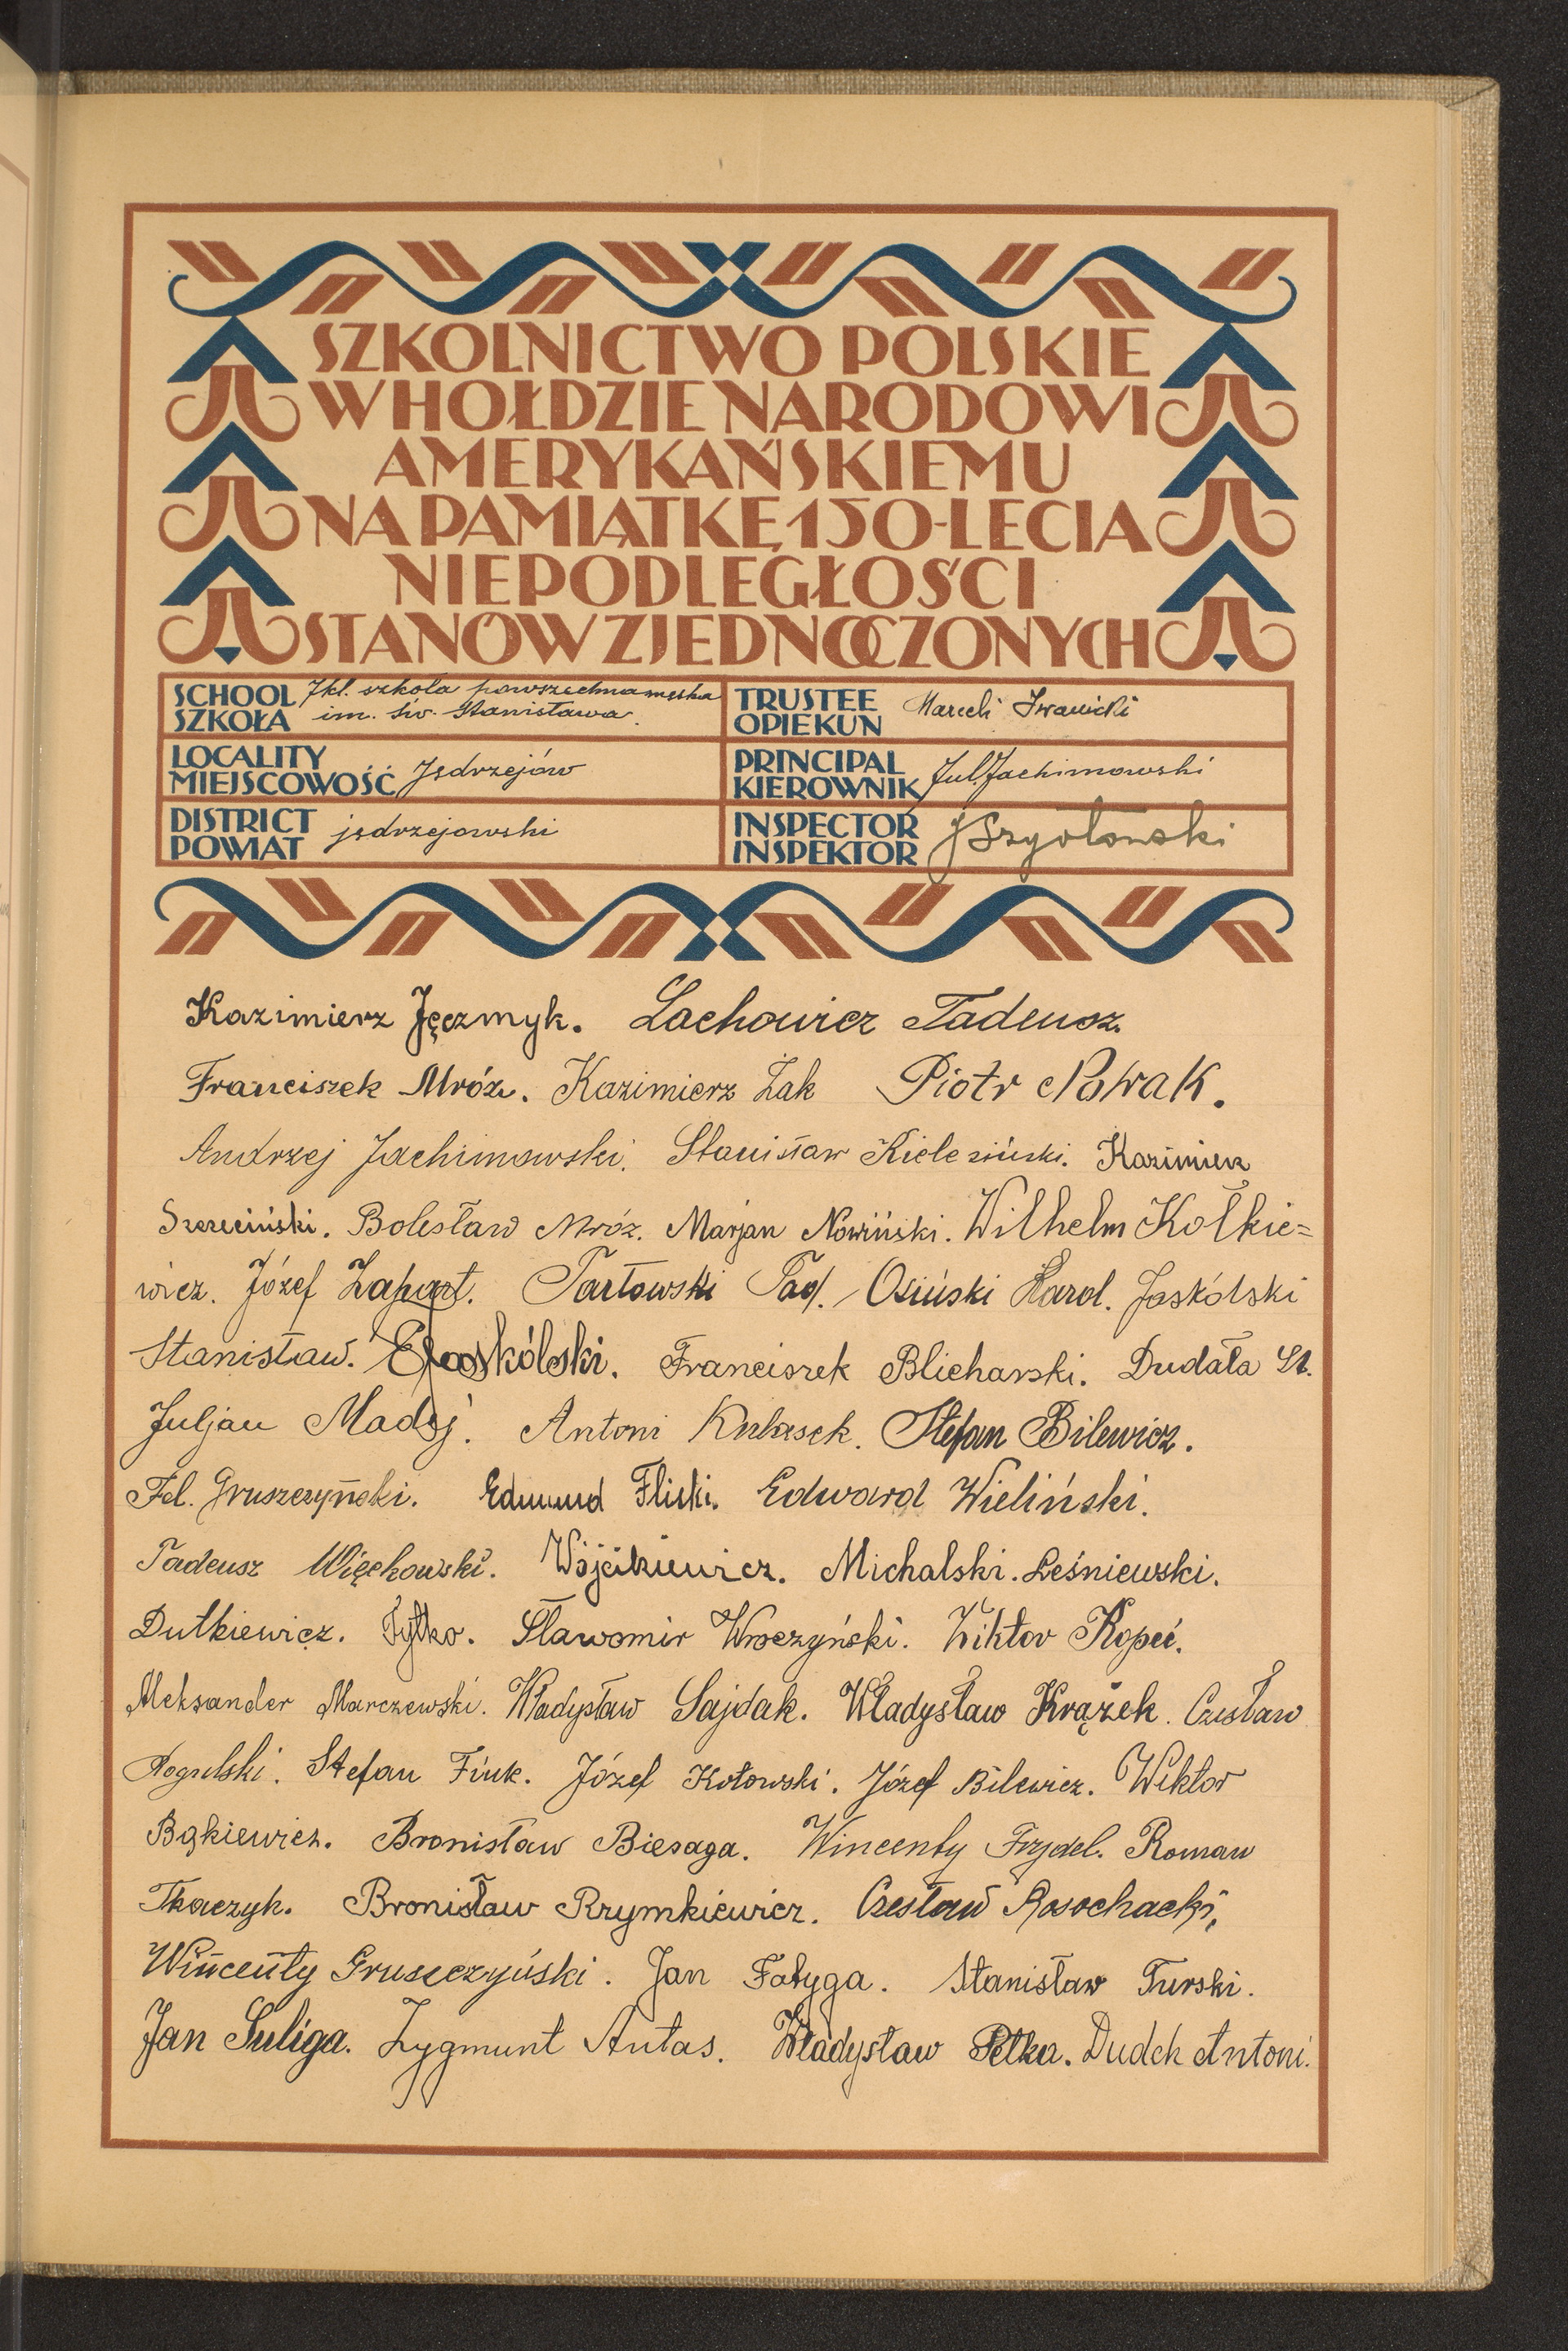 SZKOLNICTWO POLSKIE
W HOŁDZIE NARODOWI
AMERYKAŃSKIEMU
NA PAMIĄTKĘ 150-LECIA
NIEPODLEGŁOŚCI
STANÓW ZJEDNOCZONYCH
SCHOOL
SZKOŁA
7kl. szkoła powszechna męska
im. św. Stanisława.
TRUSTEE
OPIEKUN
Marceli Iwanicki
LOCALITY
MIEJSCOWOŚĆ
Jędrzejów
PRINCIPAL
KIEROWNIK
Jul. Jachimowski
DISTRICT
POWIAT
jędrzejowski
INSPECTOR
INSPEKTOR
Kazimierz Jęczmyk. Lachowicz Tadeusz.
Franciszek Mróz. Kazimierz Żak Piotr Nowak.
Andrzej Jachimowski. Stanisław Kieleziński. Kazimierz
Szczeciński. Bolesław Mróz. Marjan Nowiński. Wilhelm Kołkie=
wicz. Józef Łapart. Tarłowski Tad. Osiński Karol. Jaskólski
Stanisław. E. Jaskólski. Franciszek Blicharski. Dudała St.
Juljan Madej. Antoni Kulasek. Stefan Bilewicz.
Fel. Gruszczyński. Edmund Fliski. Edward Wieliński.
Tadeusz Więchowski. Wójcikiewicz. Michalski. Leśniewski.
Dutkiewicz. Tytko. Sławomir Wroczyński. Wiktor Kopeć.
Aleksander Marczewski. Władysław Sajdak. Władysław Krążek. Czesław
Rogulski. Stefan Fiuk. Józef Kotowski. Józef Bilewicz. Wiktor
Bąkiewicz. Bronisław Biesaga. Wincenty Frydel. Roman
Tkaczyk. Bronisław Rzymkiewicz. Czesław Rosochacki,
Wincenty Gruszczyński. Jan Fatyga. Stanisław Turski.
Jan Suliga. Zygmunt Antas. Władysław Petka. Dudek Antoni.